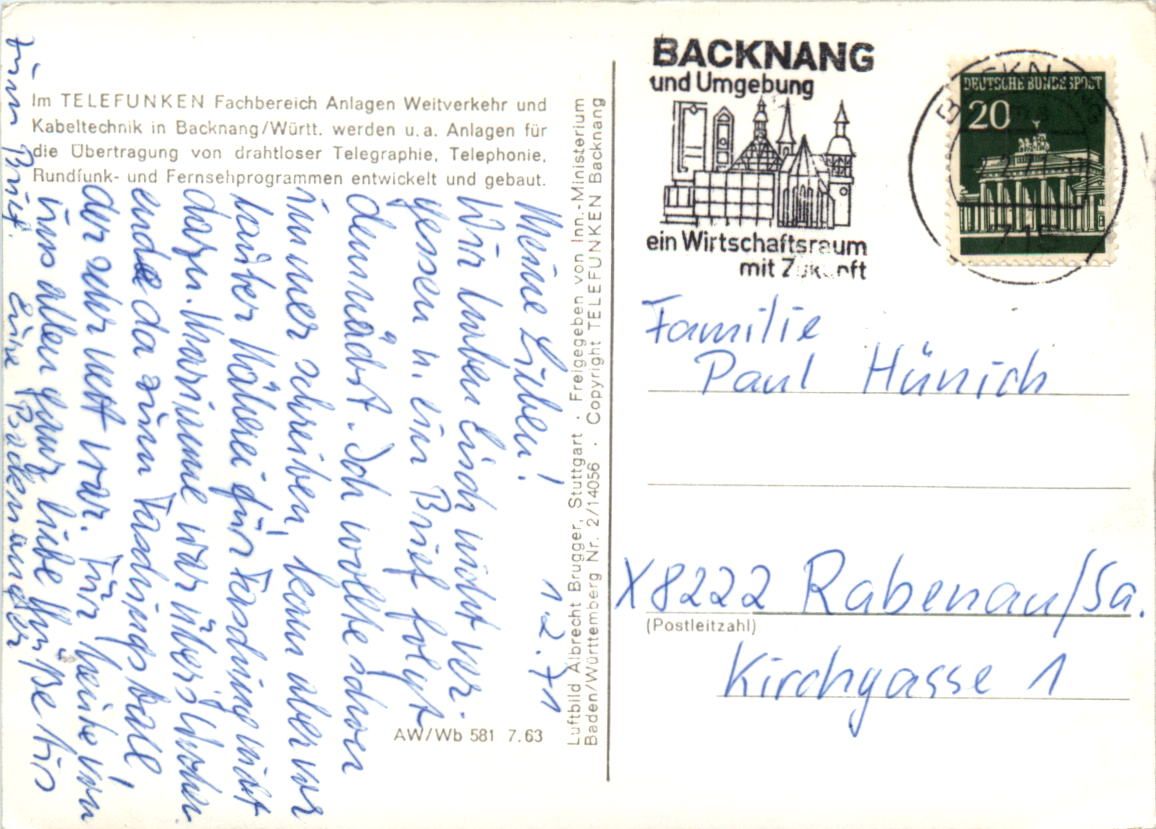 Im TELEFUNKEN Fachbereich Anlagen Weitverkehr und
Kabeltechnik in Backnang/Württ. werden u. a. Anlagen für
die Übertragung von drahtloser Telegraphie, Telephonie,
Rundfunk- und Fernsehprogrammen entwickelt und gebaut.
1.2.71
Meine Lieben!
Wir haben Euch nicht ver-
gessen u. ein Brief folgt
demnächst. Ich wollte schon
immer schreiben, kam aber vor
lauter Näherei für Fasching nicht
dazu. Marianne war übers Wochen
ende da zum Faschingsball,
der sehr nett war. Für heute von
uns allen ganz liebe Grüße bis
zum Brief. Eure Backnanger
AW/Wb 581 7.63
Luftbild Albrecht Brugger, Stuttgart · Freigegeben von Inn.-Ministerium
Baden/Württemberg Nr. 2/14056 · Copyright TELEFUNKEN Backnang
BACKNANG
und Umgebung
ein Wirtschaftsraum
mit Zukunft
DEUTSCHE BUNDESPOST
20
BACKNANG
Familie
Paul Hünich
X8222 Rabenau/Sa.
(Postleitzahl)
Kirchgasse 1